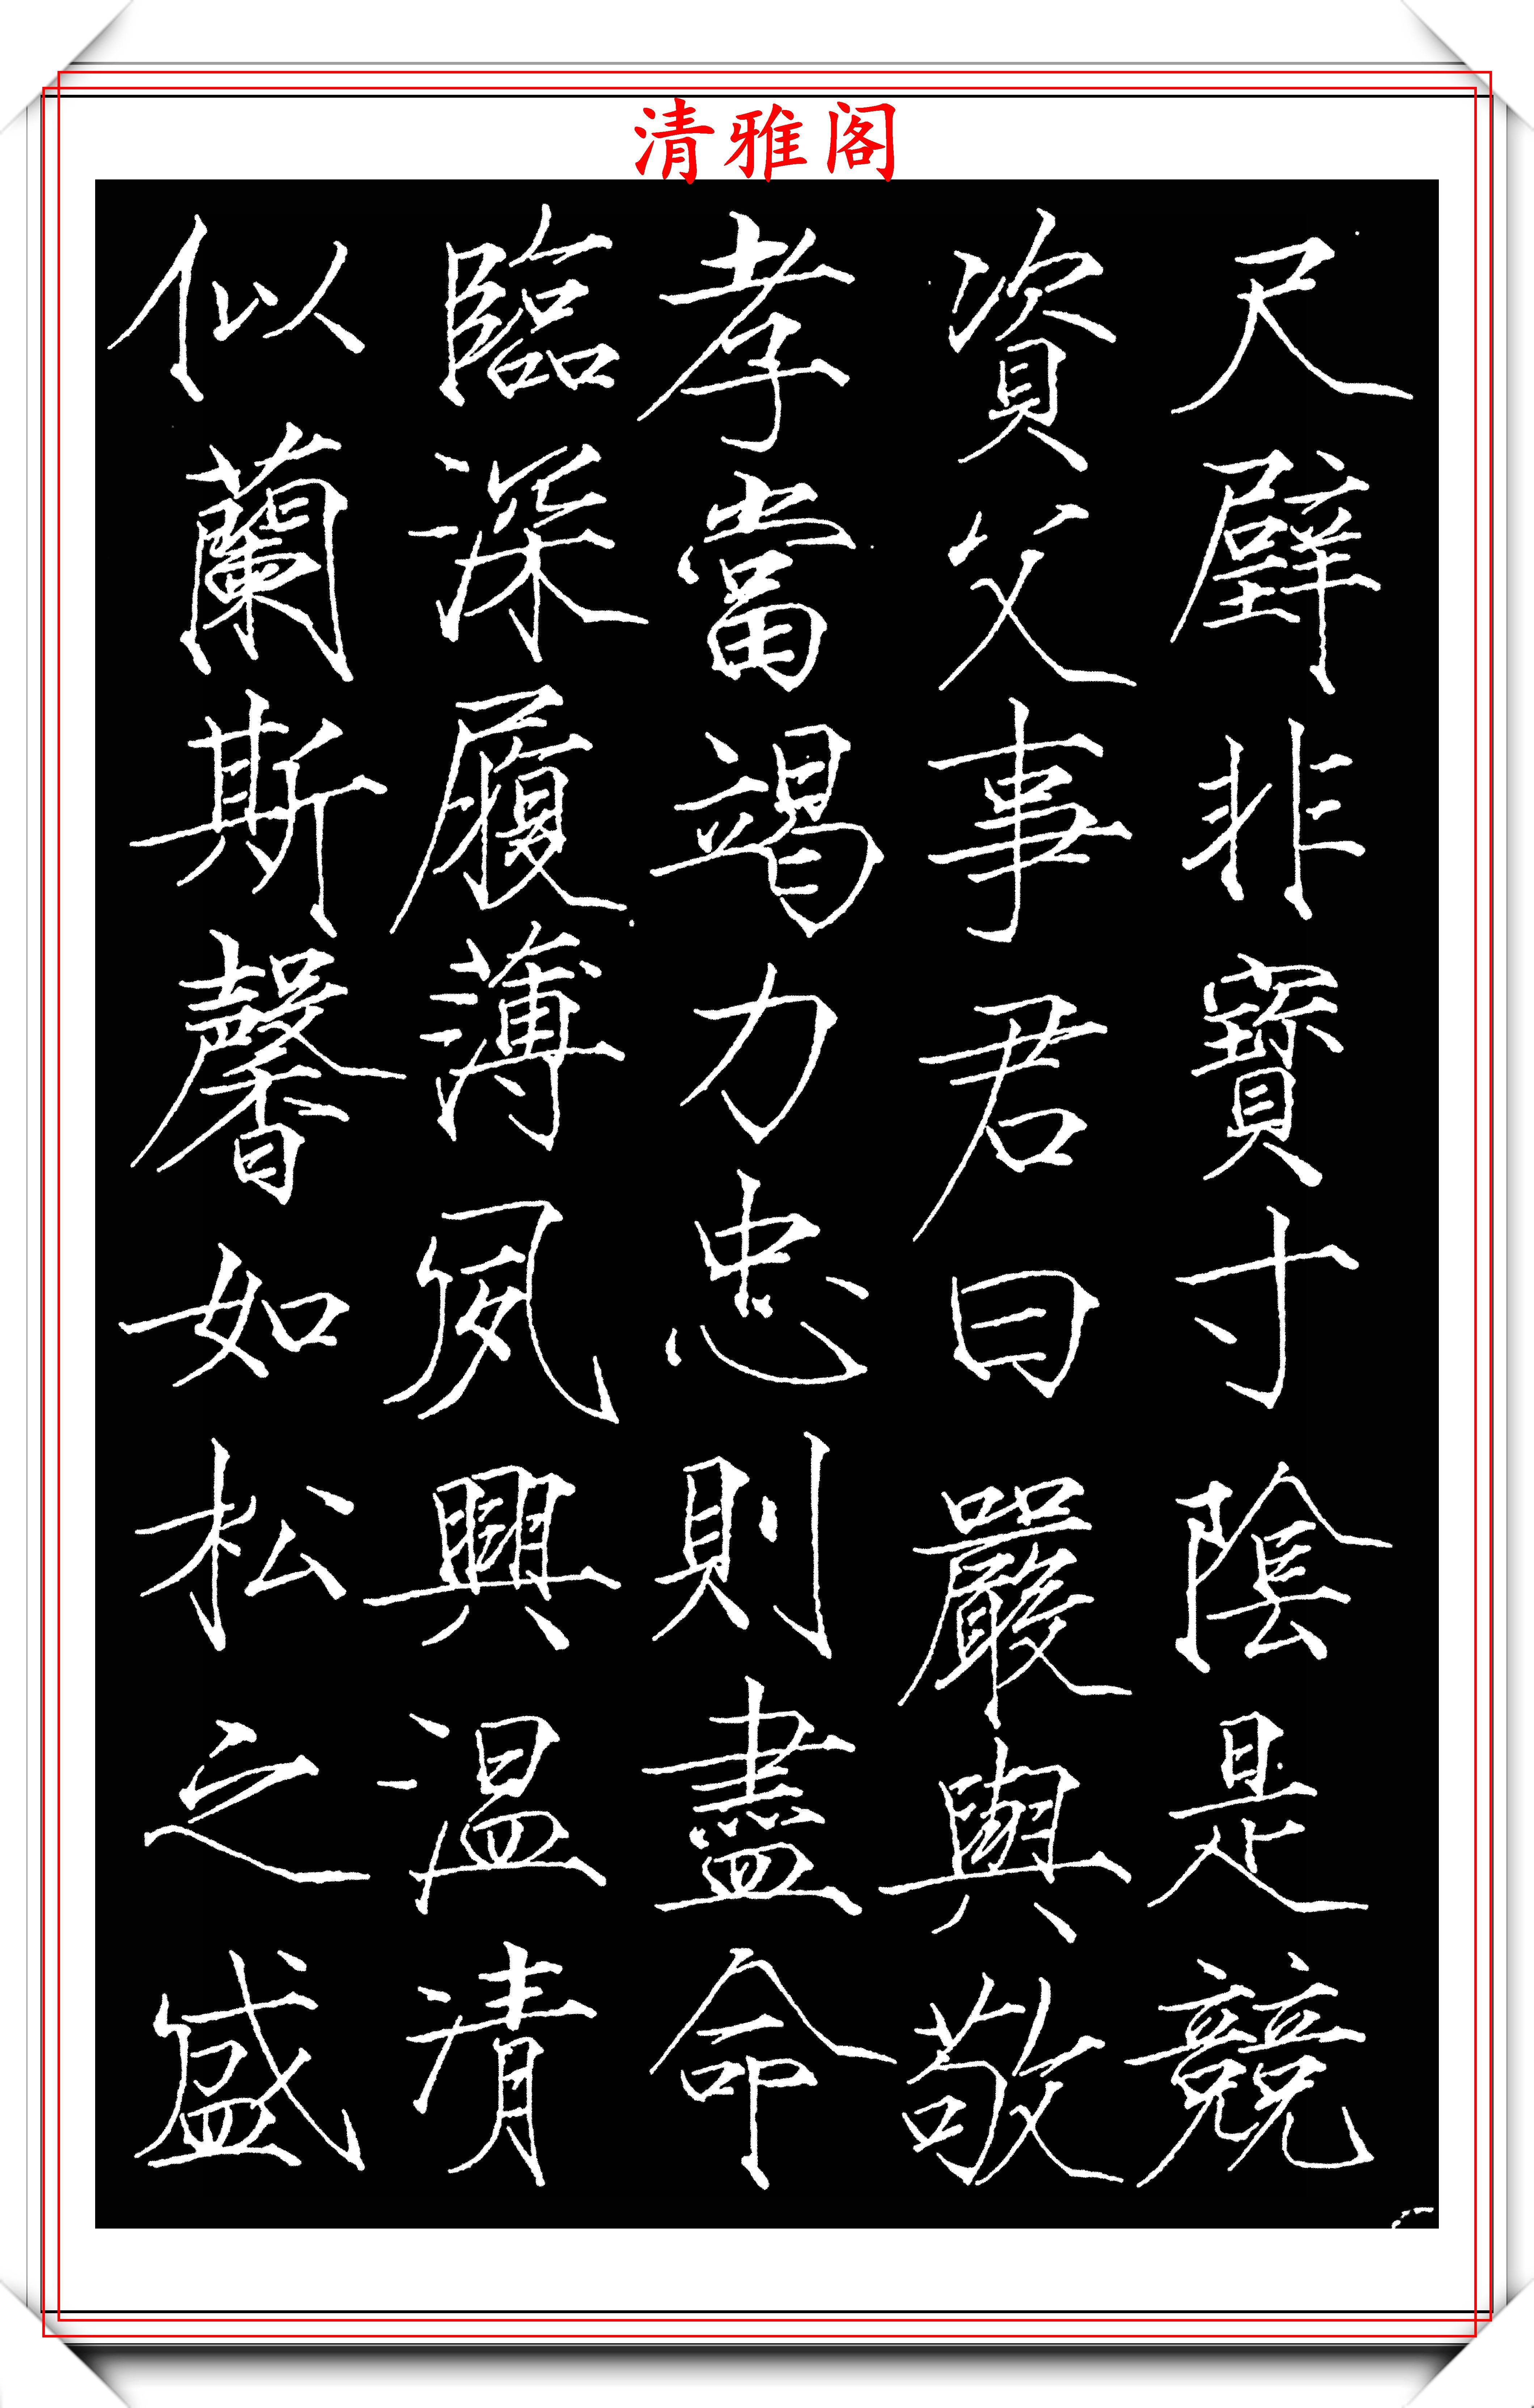 清雅阁
尺璧非寶寸陰是競
資父事君曰嚴與敬
孝當竭力忠則盡命
臨深履薄夙興温凊
似蘭斯馨如松之盛